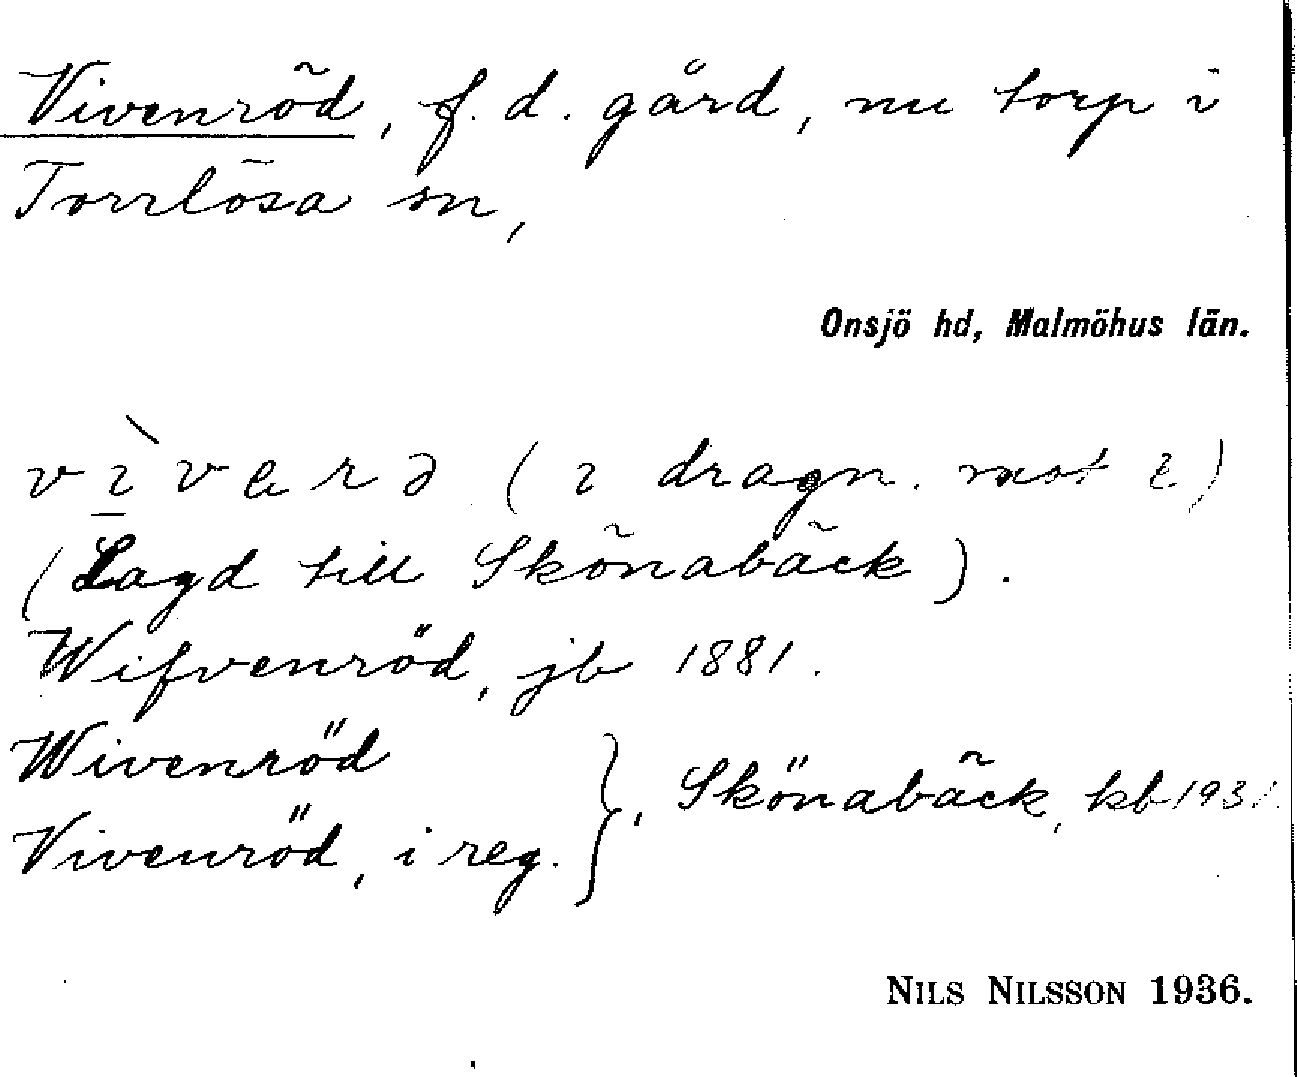 Vivenröd, f. d. gård, nu torp i
Torrlösa sn,
Onsjö hd, Malmöhus län.
(ɿ dragn. mot e)
(Lagd till Skönabäck).
Wifvenröd, jb 1881.
Wivenröd
Vivenröd, i reg. }, Skönabäck, kb 1931.
NILS NILSSON 1936.